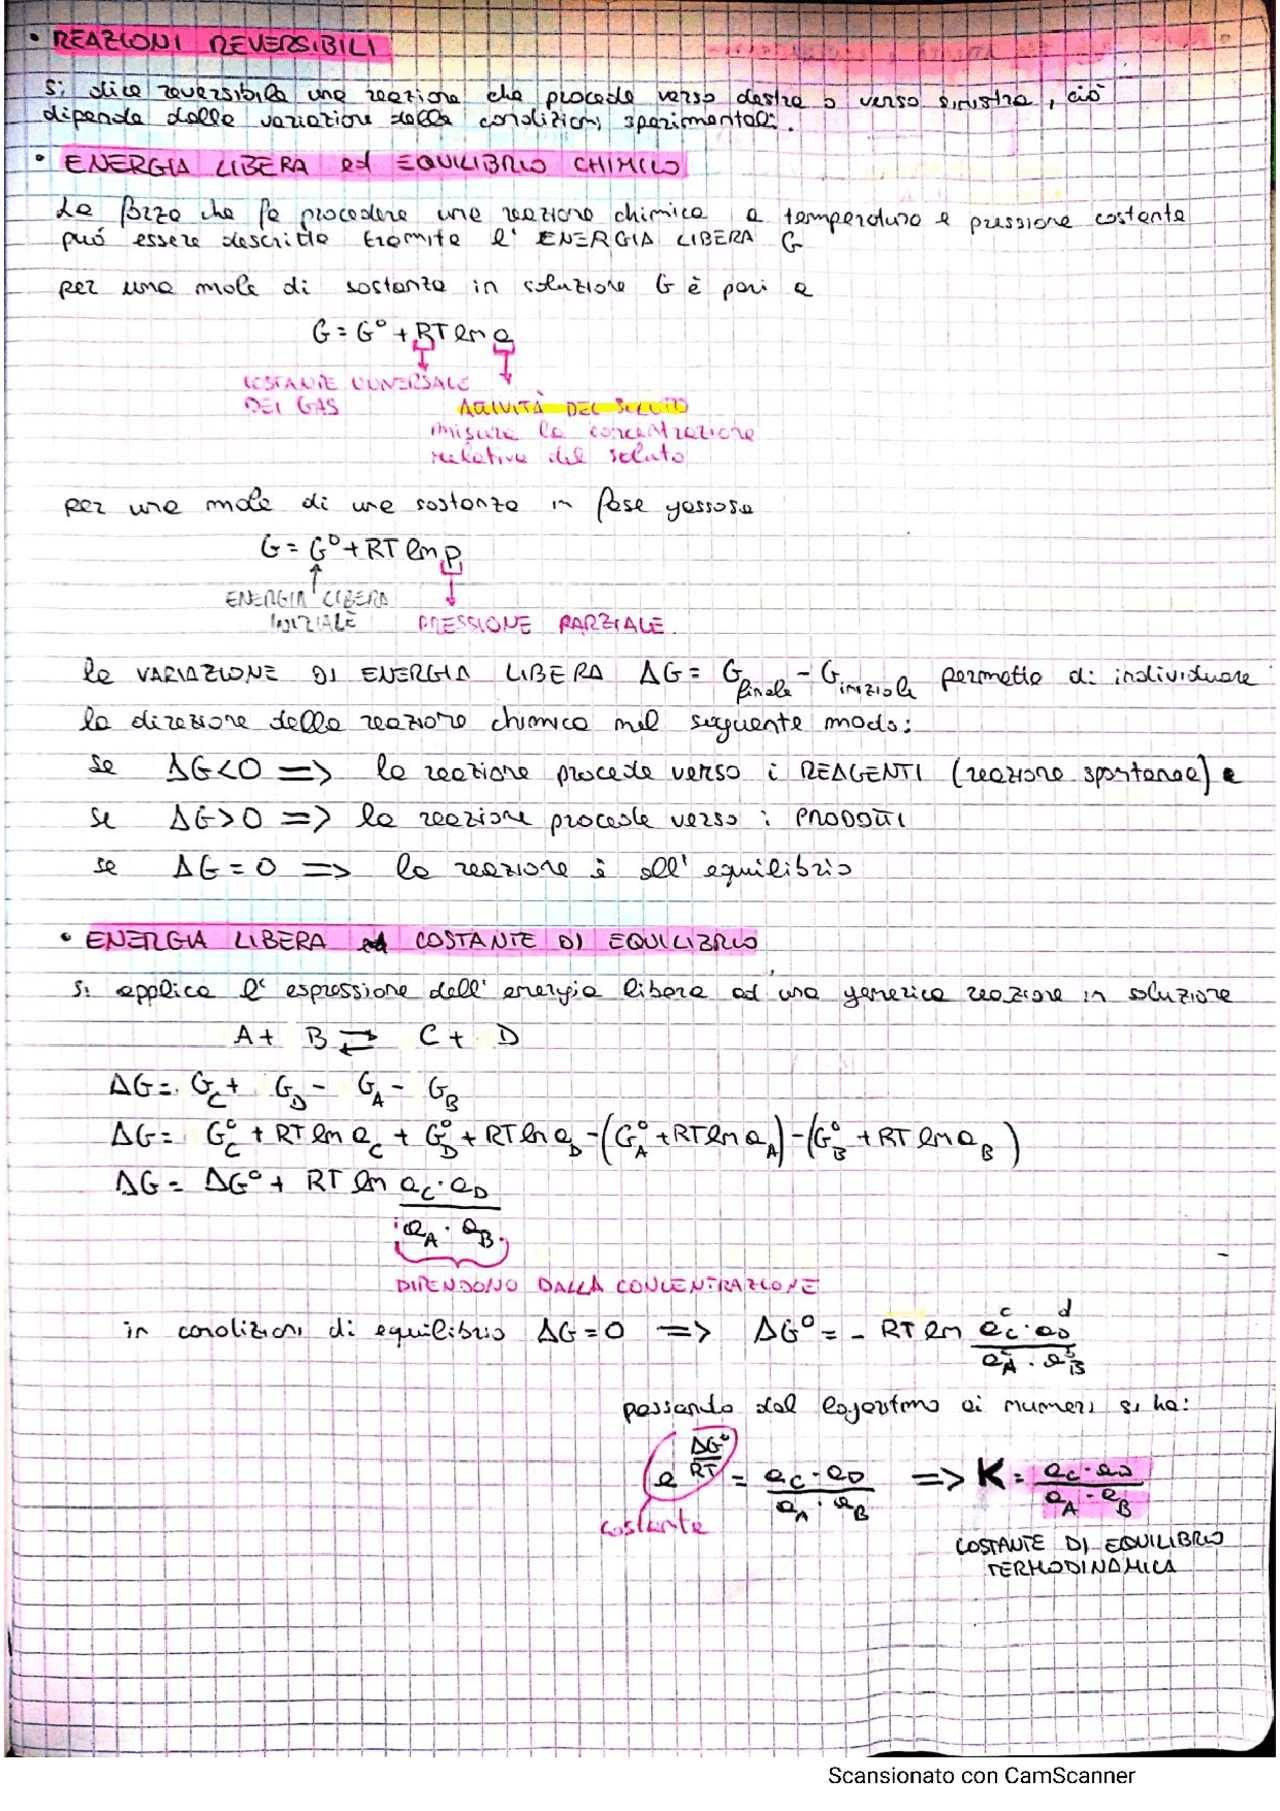 • REAZIONI REVERSIBILI
Si dice reversibile una reazione che procede verso destra o verso sinistra, ciò
dipende dalle variazioni delle condizioni sperimentali.
• ENERGIA LIBERA ed EQUILIBRIO CHIMICO
La forza che fa procedere una reazione chimica a temperatura e pressione costante
può essere descritta tramite l' ENERGIA LIBERA G
per una mole di sostanza in soluzione G è pari a
G = G° + RT ln a
COSTANTE UNIVERSALE
DEI GAS
ATTIVITÀ DEL SOLUTO
misura la concentrazione
relativa del soluto
per una mole di una sostanza in fase gassosa
G = G° + RT ln p
ENERGIA LIBERA
INIZIALE
PRESSIONE PARZIALE
la VARIAZIONE DI ENERGIA LIBERA ΔG = G finale - G iniziale permette di individuare
la direzione della reazione chimica nel seguente modo:
se ΔG<0 => la reazione procede verso i REAGENTI (reazione spontanea) e
se ΔG>0 => la reazione procede verso i PRODOTTI
se ΔG = 0 => la reazione è all' equilibrio
• ENERGIA LIBERA ed COSTANTE DI EQUILIBRIO
si applica l' espressione dell' energia libera ad una generica reazione in soluzione
A + B ⇄ C + D
ΔG = G_C + G_D - G_A - G_B
ΔG = G°_C + RT ln a_C + G°_D + RT ln a_D - (G°_A + RT ln a_A) - (G°_B + RT ln a_B)
ΔG = ΔG° + RT ln a_C · a_D
a_A · a_B
DIPENDONO DALLA CONCENTRAZIONE
in condizioni di equilibrio ΔG = 0 => ΔG° = - RT ln a_C^c · a_D^d
a_A^a · a_B^b
passando dal logaritmo ai numeri si ha:
e^(ΔG°/RT) = a_C · a_D / a_A · a_B => K = a_C · a_D / a_A · a_B
costante
COSTANTE DI EQUILIBRIO
TERMODINAMICA
Scansionato con CamScanner